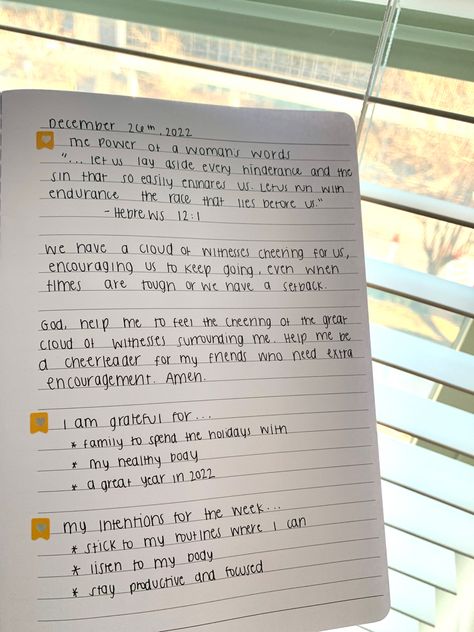 December 26th, 2022
The Power of a woman's words
"... let us lay aside every hinderance and the
sin that so easily ensnares us. Let us run with
endurance the race that lies before us."
- Hebrews 12:1
We have a cloud of witnesses cheering for us,
encouraging us to keep going, even when
times are tough or we have a setback.
God, help me to feel the cheering of the great
cloud of witnesses surrounding me. Help me be
a cheerleader for my friends who need extra
encouragement. Amen.
I am grateful for...
* family to spend the holidays with
* my healthy body
* a great year in 2022
my intentions for the week...
* stick to my routines where I can
* listen to my body
* stay productive and focused